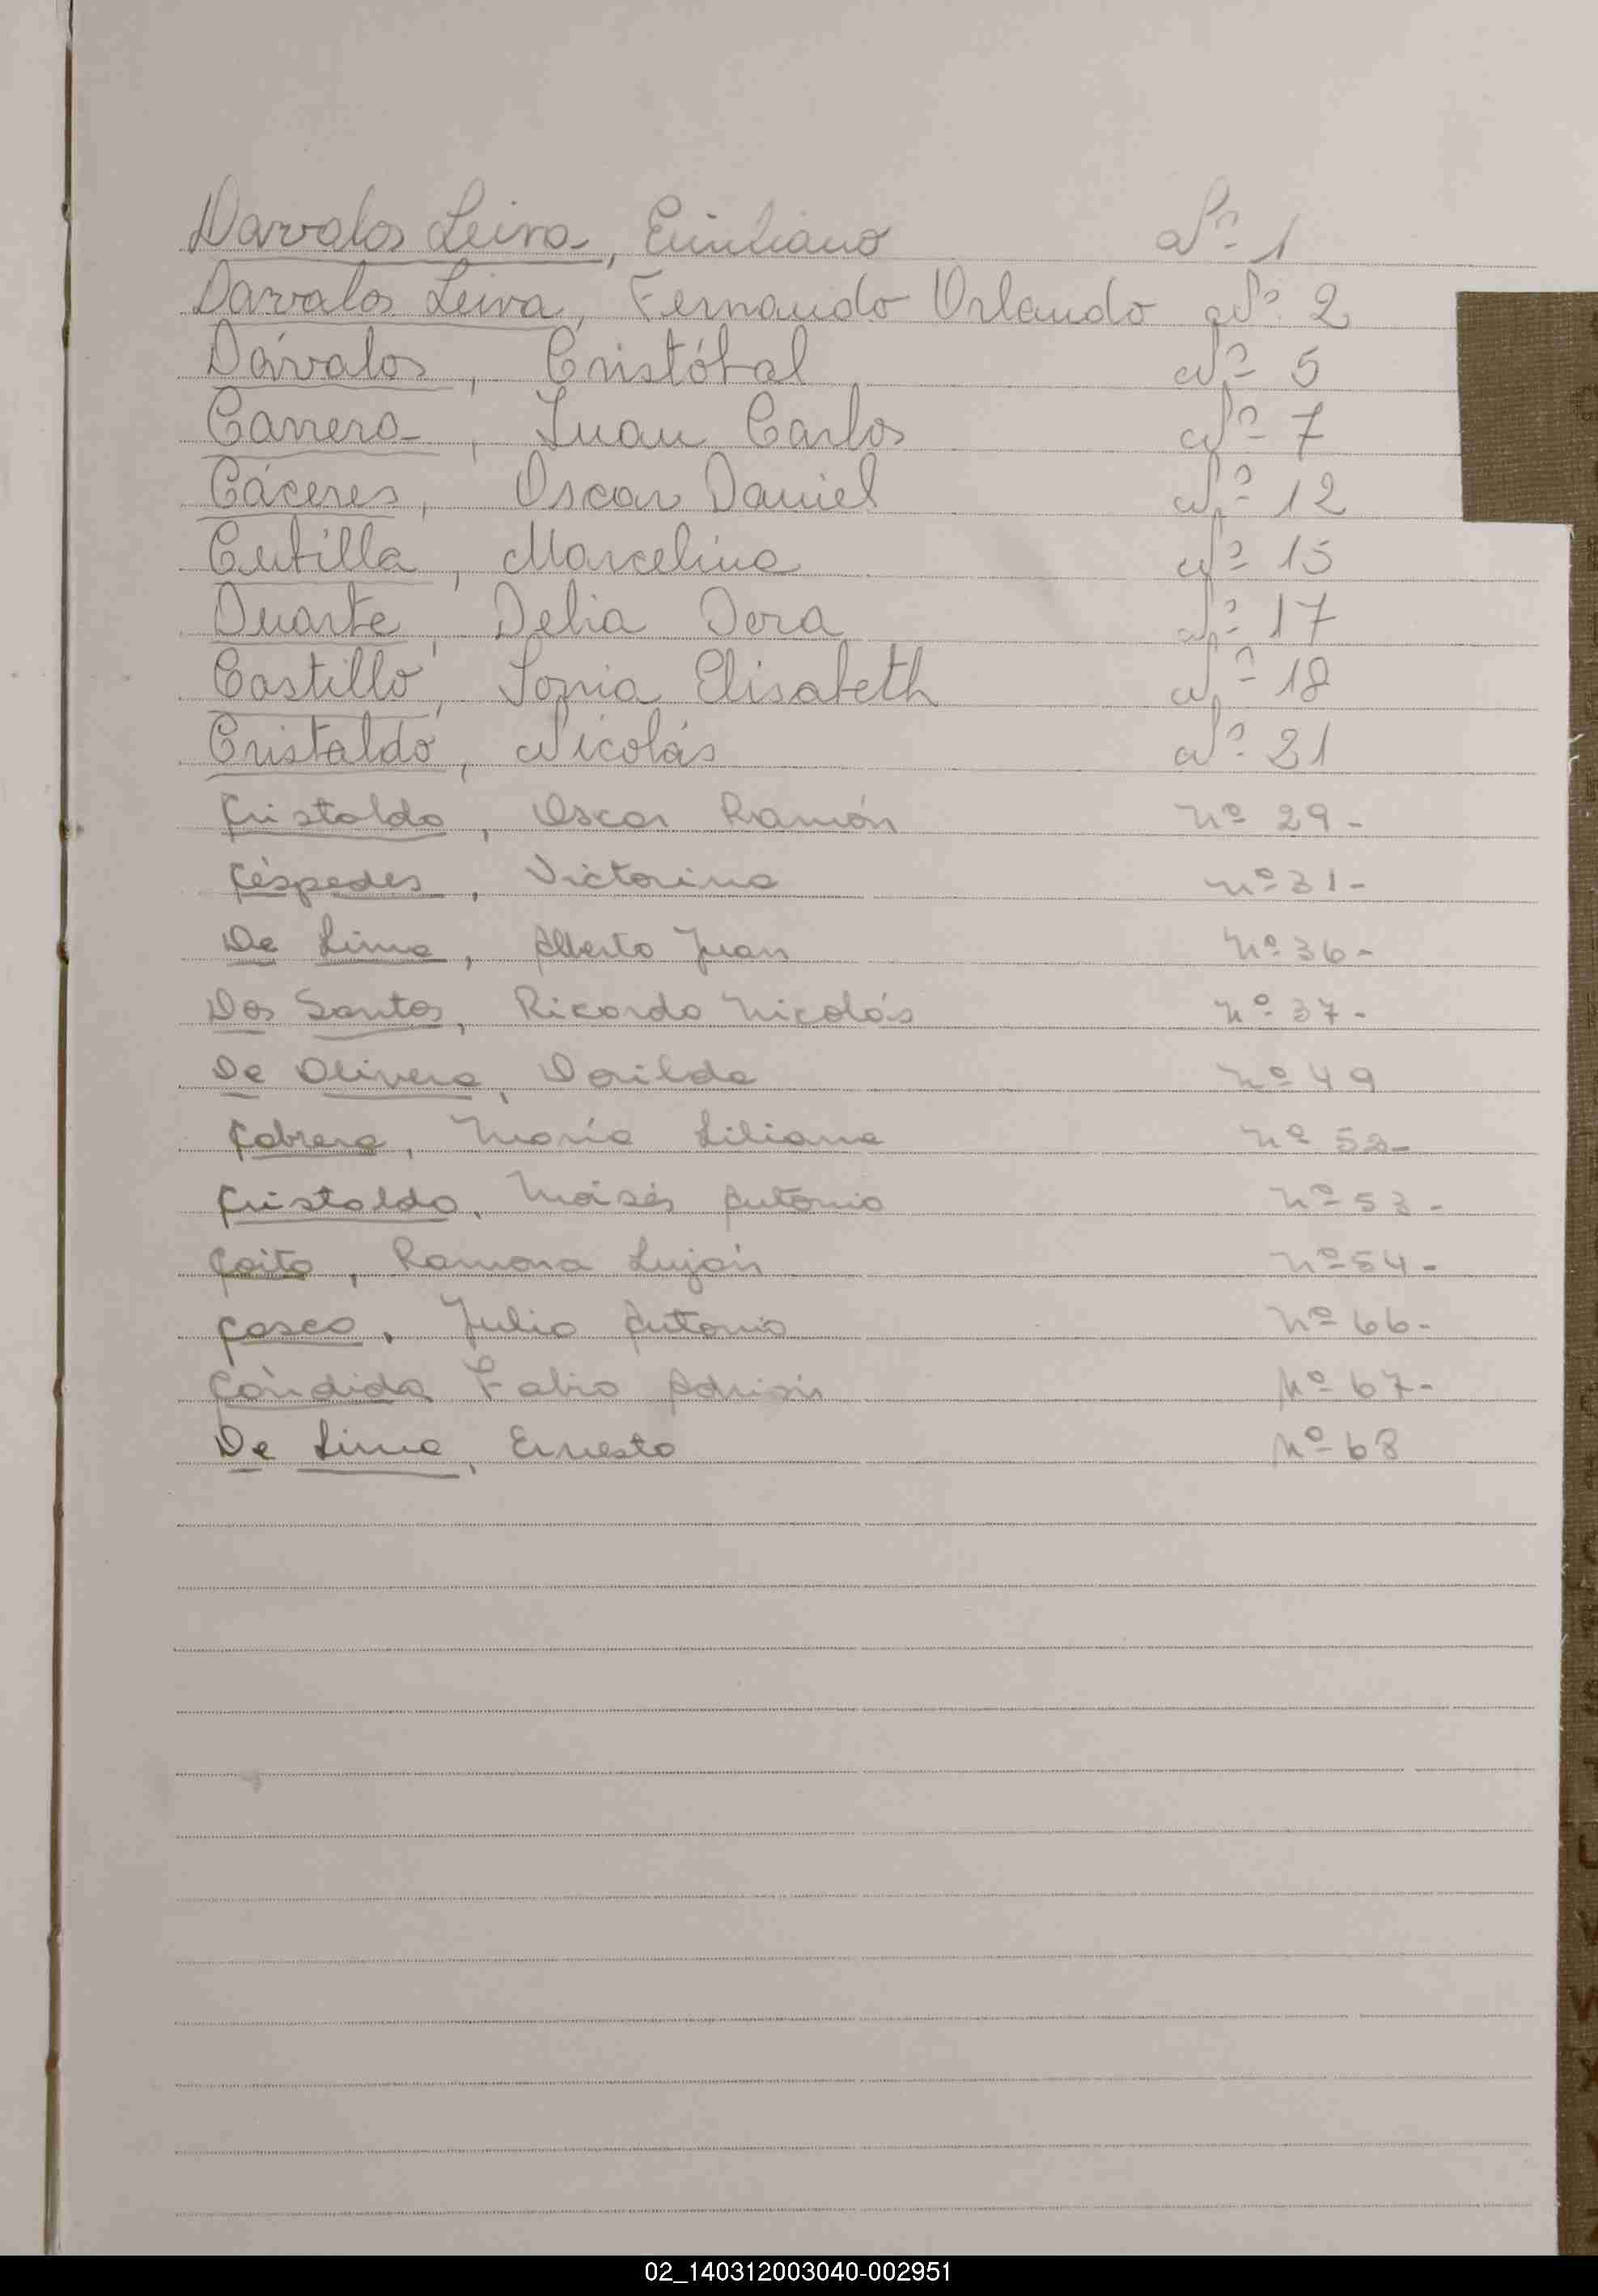 Davalos Leiva, Emiliano Nº 1
Davalos Leiva, Fernando Orlando Nº 2
Dávalos, Cristóbal Nº 5
Carrera, Juan Carlos Nº 7
Cáceres, Oscar Daniel Nº 12
Cubilla, Marcelina Nº 15
Duarte, Delia Dora Nº 17
Castillo, Sonia Elisabeth Nº 18
Cristaldo, Nicolás Nº 21
Cristaldo, Oscar Ramón Nº 29-
Céspedes, Victorina Nº 31-
De Lima, Alberto Juan Nº 36-
Dos Santos, Ricardo Nicolás Nº 37-
De Olivera, Dorilda Nº 49
Cabrera, María Liliana Nº 52-
Cristaldo, Moisés Antonio Nº 53-
Ramona Luján Nº 54-
Casco, Julio Antonio Nº 66-
Cándida Fabio Adrián Nº 67-
De Lima, Ernesto Nº 68
02_140312003040-002951